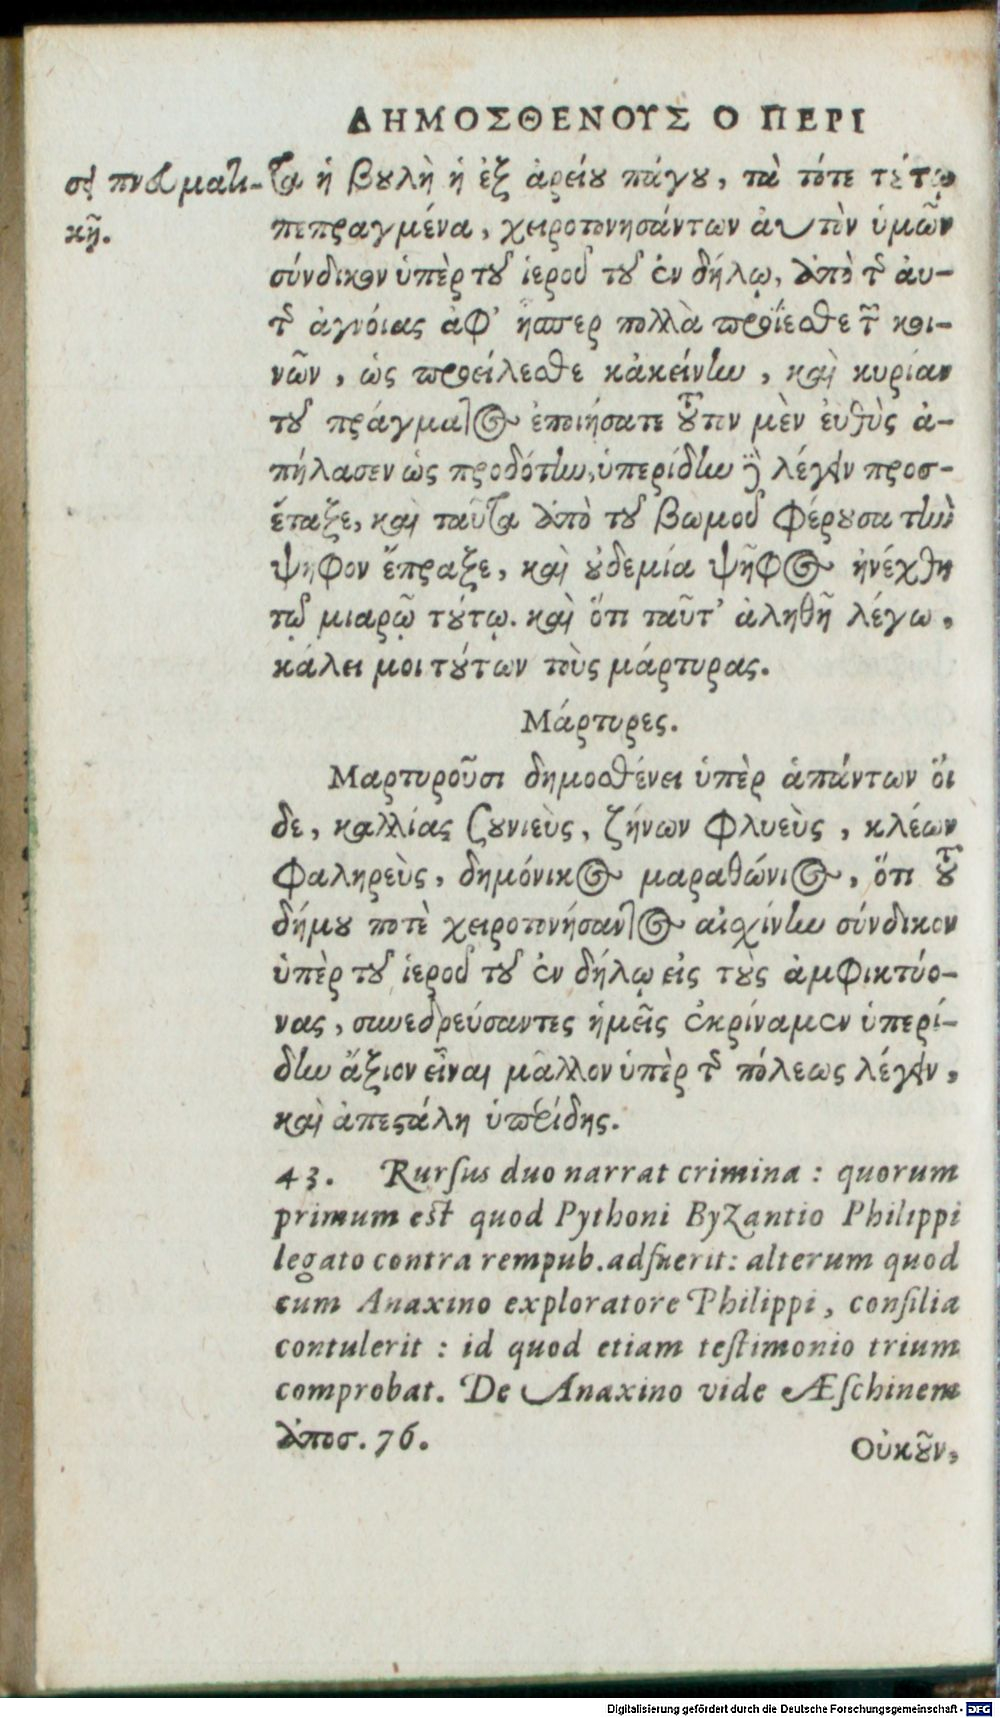 ΔΗΜΟΣΘΕΝΟΥΣ Ο ΠΕΡΙ
σις πνευματι-
κῆ.
τα ἡ βουλὴ ἡ ἐξ ἀρείου πάγου, τὰ τότε τούτῳ
πεπραγμένα, χειροτονησάντων ἀυτὸν ὑμῶν
σύνδικον ὑπὲρ τοῦ ἱεροῦ τοῦ ἐν δήλῳ, ἀπὸ τῆς ἀυ-
τῆς ἀγνόιας ἀφ’ ἧσπερ πολλὰ προΐεσθε τῶν κοι-
νῶν, ὡς προείλεσθε κἀκείνην, καὶ κυρίαν
τοῦ πράγματος ἐποιήσατε τοῦτον μὲν ἐυθὺς ἀ-
πήλασεν ὡς προδότην, ὑπερίδην δὲ λέγειν προσ-
έταξε, καὶ ταῦτα ἀπὸ τοῦ βωμοῦ φέρουσα τὴν
ψῆφον ἔπραξε, καὶ οὐδεμία ψῆφος ἠνέχθη
τῷ μιαρῷ τούτῳ. καὶ ὅτι ταῦτ’ ἀληθῆ λέγω,
κάλει μοι τούτων τοὺς μάρτυρας.
Μάρτυρες.
Μαρτυροῦσι δημοσθένει ὑπὲρ ἁπάντων ὅι
δε, καλλίας σουνιεὺς, ζήνων φλυεὺς, κλέων
φαληρεὺς, δημόνικος μαραθώνιος, ὅτι τοῦ
δήμου ποτὲ χειροτονήσαντος αἰσχίνην σύνδικον
ὑπὲρ τοῦ ἱεροῦ τοῦ ἐν δήλῳ εἰς τοὺς ἀμφικτύο-
νας, συνεδρεύσαντες ἡμεῖς ἐκρίναμεν ὑπερί-
δην ἄξιον εἶναι μᾶλλον ὑπὲρ τῆς πόλεως λέγειν,
καὶ ἀπεστάλη ὑπερίδης.
43. Rursus duo narrat crimina : quorum
primum est quod Pythoni Byzantio Philippi
legato contra rempub. adfuerit: alterum quod
cum Anaxino exploratore Philippi, consilia
contulerit : id quod etiam testimonio trium
comprobat. De Anaxino vide Æschinem
ἀποσ. 76.
Οὐκοῦν,
Digitalisierung gefördert durch die Deutsche Forschungsgemeinschaft - DFG